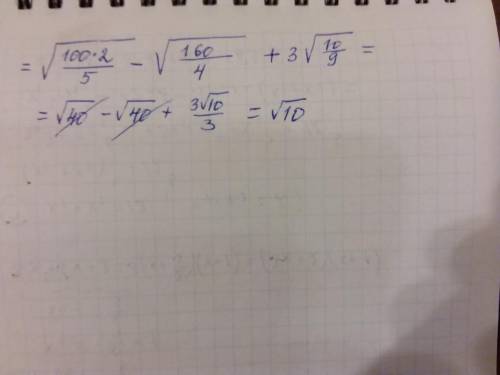 = √(100·2/5) - √(160/4) + 3√(10/9) =
= √40 - √40 + 3√10/3 = √10